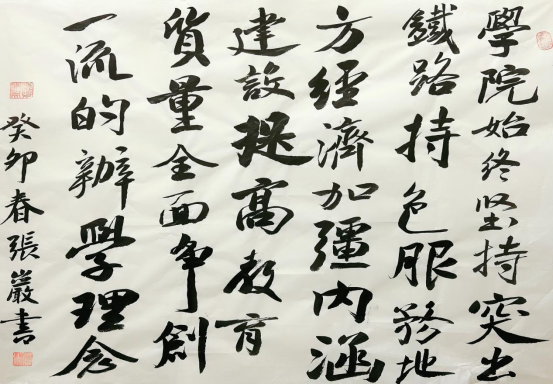 學院始終坚持突出
鐵路特色服務地
方經濟加彊内涵
建設提高教育
質量全面争創
一流的辦學理念
癸卯春張巖書